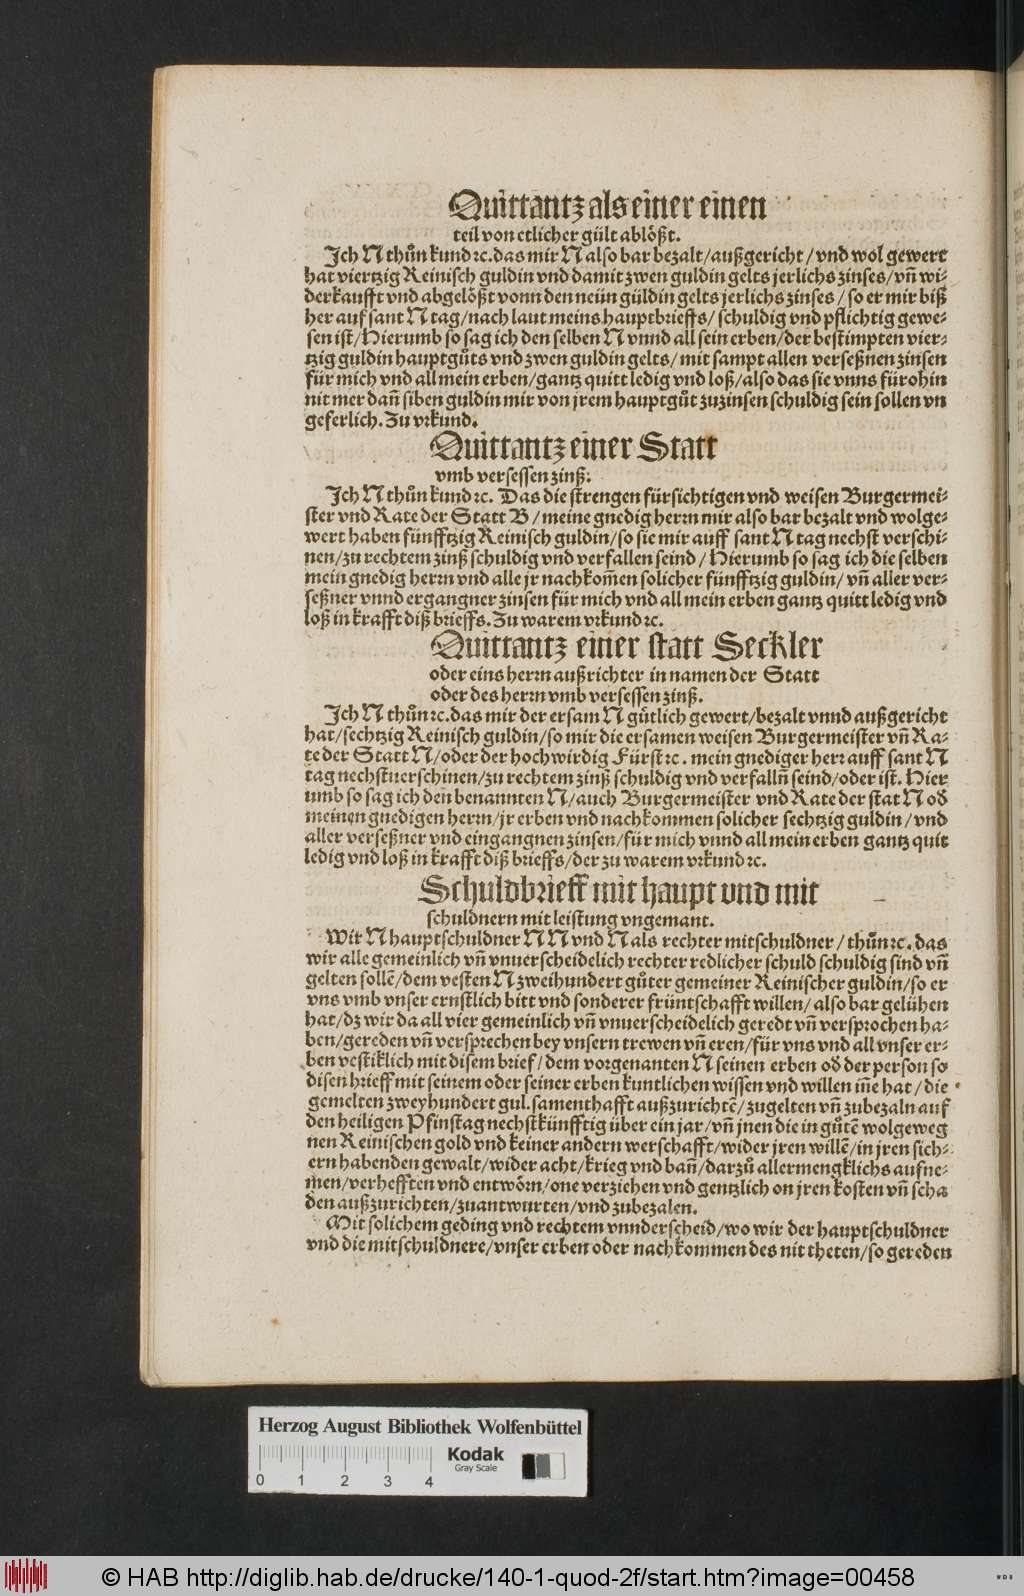 Quittantz als einer einen
teil von etlicher gült ablößt.
Ich N thůn kund ꝛc. das mir N also bar bezalt/außgericht/vnd wol gewert
hat viertzig Reinisch guldin vnd damit zwen guldin gelts jerlichs zinses/vñ wi-
derkaufft vnd abgelößt vonn den neün güldin gelts jerlichs zinses/so er mir biß
her auf sant N tag/nach laut meins hauptbrieffs/schuldig vnd pflichtig gewe-
sen ist/Hierumb so sag ich den selben N vnnd all sein erben/der bestimpten vier-
tzig guldin hauptgůts vnd zwen guldin gelts/mit sampt allen verseßnen zinsen
für mich vnd all mein erben/gantz quitt ledig vnd loß/also das sie vnns fürohin
nit mer dañ siben guldin mir von jrem hauptgůt zuzinsen schuldig sein sollen vn
geferlich. Zu vrkund.
Quittantz einer Statt
vmb versessen zinß.
Ich N thůn kund ꝛc. Das die strengen fürsichtigen vnd weisen Burgermei-
ster vnd Rate der Statt B/meine gnedig herrn mir also bar bezalt vnd wolge-
wert haben fünfftzig Reinisch guldin/so sie mir auff sant N tag nechst verschi-
nen/zu rechtem zinß schuldig vnd verfallen seind/Hierumb so sag ich die selben
mein gnedig herrn vnd alle jr nachkom̃en solicher fünfftzig guldin/vñ aller ver-
seßner vnnd ergangner zinsen für mich vnd all mein erben gantz quitt ledig vnd
loß in krafft diß brieffs. Zu warem vrkund ꝛc.
Quittantz einer statt Seckler
oder eins herrn außrichter in namen der Statt
oder des herrn vmb versessen zinß.
Ich N thůn ꝛc. das mir der ersam N gůtlich gewert/bezalt vnnd außgericht
hat/sechtzig Reinisch guldin/so mir die ersamen weisen Burgermeister vñ Ra-
te der Statt N/oder der hochwirdig Fürst ꝛc. mein gnediger herr auff sant N
tag nechstuerschinen/zu rechtem zinß schuldig vnd verfallñ seind/oder ist. Hier
umb so sag ich den benannten N/auch Burgermeister vnd Rate der stat N oď
meinen gnedigen herrn/jr erben vnd nachkommen solicher sechtzig guldin/vnd
aller verseßner vnd eingangnen zinsen/für mich vnnd all mein erben gantz quit
ledig vnd loß in krafft diß brieffs/der zu warem vrkund ꝛc.
Schuldbrieff mit haupt vnd mit
schuldnern mit leistung vngemant.
Wir N hauptschuldner N N vnd N als rechter mitschuldner/thůn ꝛc. das
wir alle gemeinlich vñ vnuerscheidelich rechter redlicher schuld schuldig sind vñ
gelten sollẽ/dem vesten N zweihundert gůter gemeiner Reinischer guldin/so er
vns vmb vnser ernstlich bitt vnd sonderer früntschafft willen/also bar gelühen
hat/dz wir da all vier gemeinlich vñ vnuerscheidelich geredt vñ versprochen ha-
ben/gereden vñ versprechen bey vnsern trewen vñ eren/für vns vnd all vnser er-
ben vestiklich mit disem brief/dem vorgenanten N seinen erben oď der person so
disen brieff mit seinem oder seiner erben kuntlichen wissen vnd willen iñe hat/die
gemelten zweyhundert gul. samenthafft außzurichtẽ/zugelten vñ zubezaln auf
den heiligen Pfinstag nechstkünfftig über ein jar/vñ jnen die in gůtẽ wolgeweg
nen Reinischen gold vnd keiner andern werschafft/wider jren willẽ/in jren sich-
ern habenden gewalt/wider acht/krieg vnd bañ/darzů allermengklichs aufne-
men/verhefften vnd entwörn/one verziehen vnd gentzlich on jren kosten vñ scha
den außzurichten/zuantwurten/vnd zubezalen.
Mit solichem geding vnd rechtem vnnderscheid/wo wir der hauptschuldner
vnd die mitschuldnere/vnser erben oder nachkommen des nit theten/so gereden
Herzog August Bibliothek Wolfenbüttel
Kodak
Gray Scale
0 1 2 3 4
© HAB http://diglib.hab.de/drucke/140-1-quod-2f/start.htm?image=00458